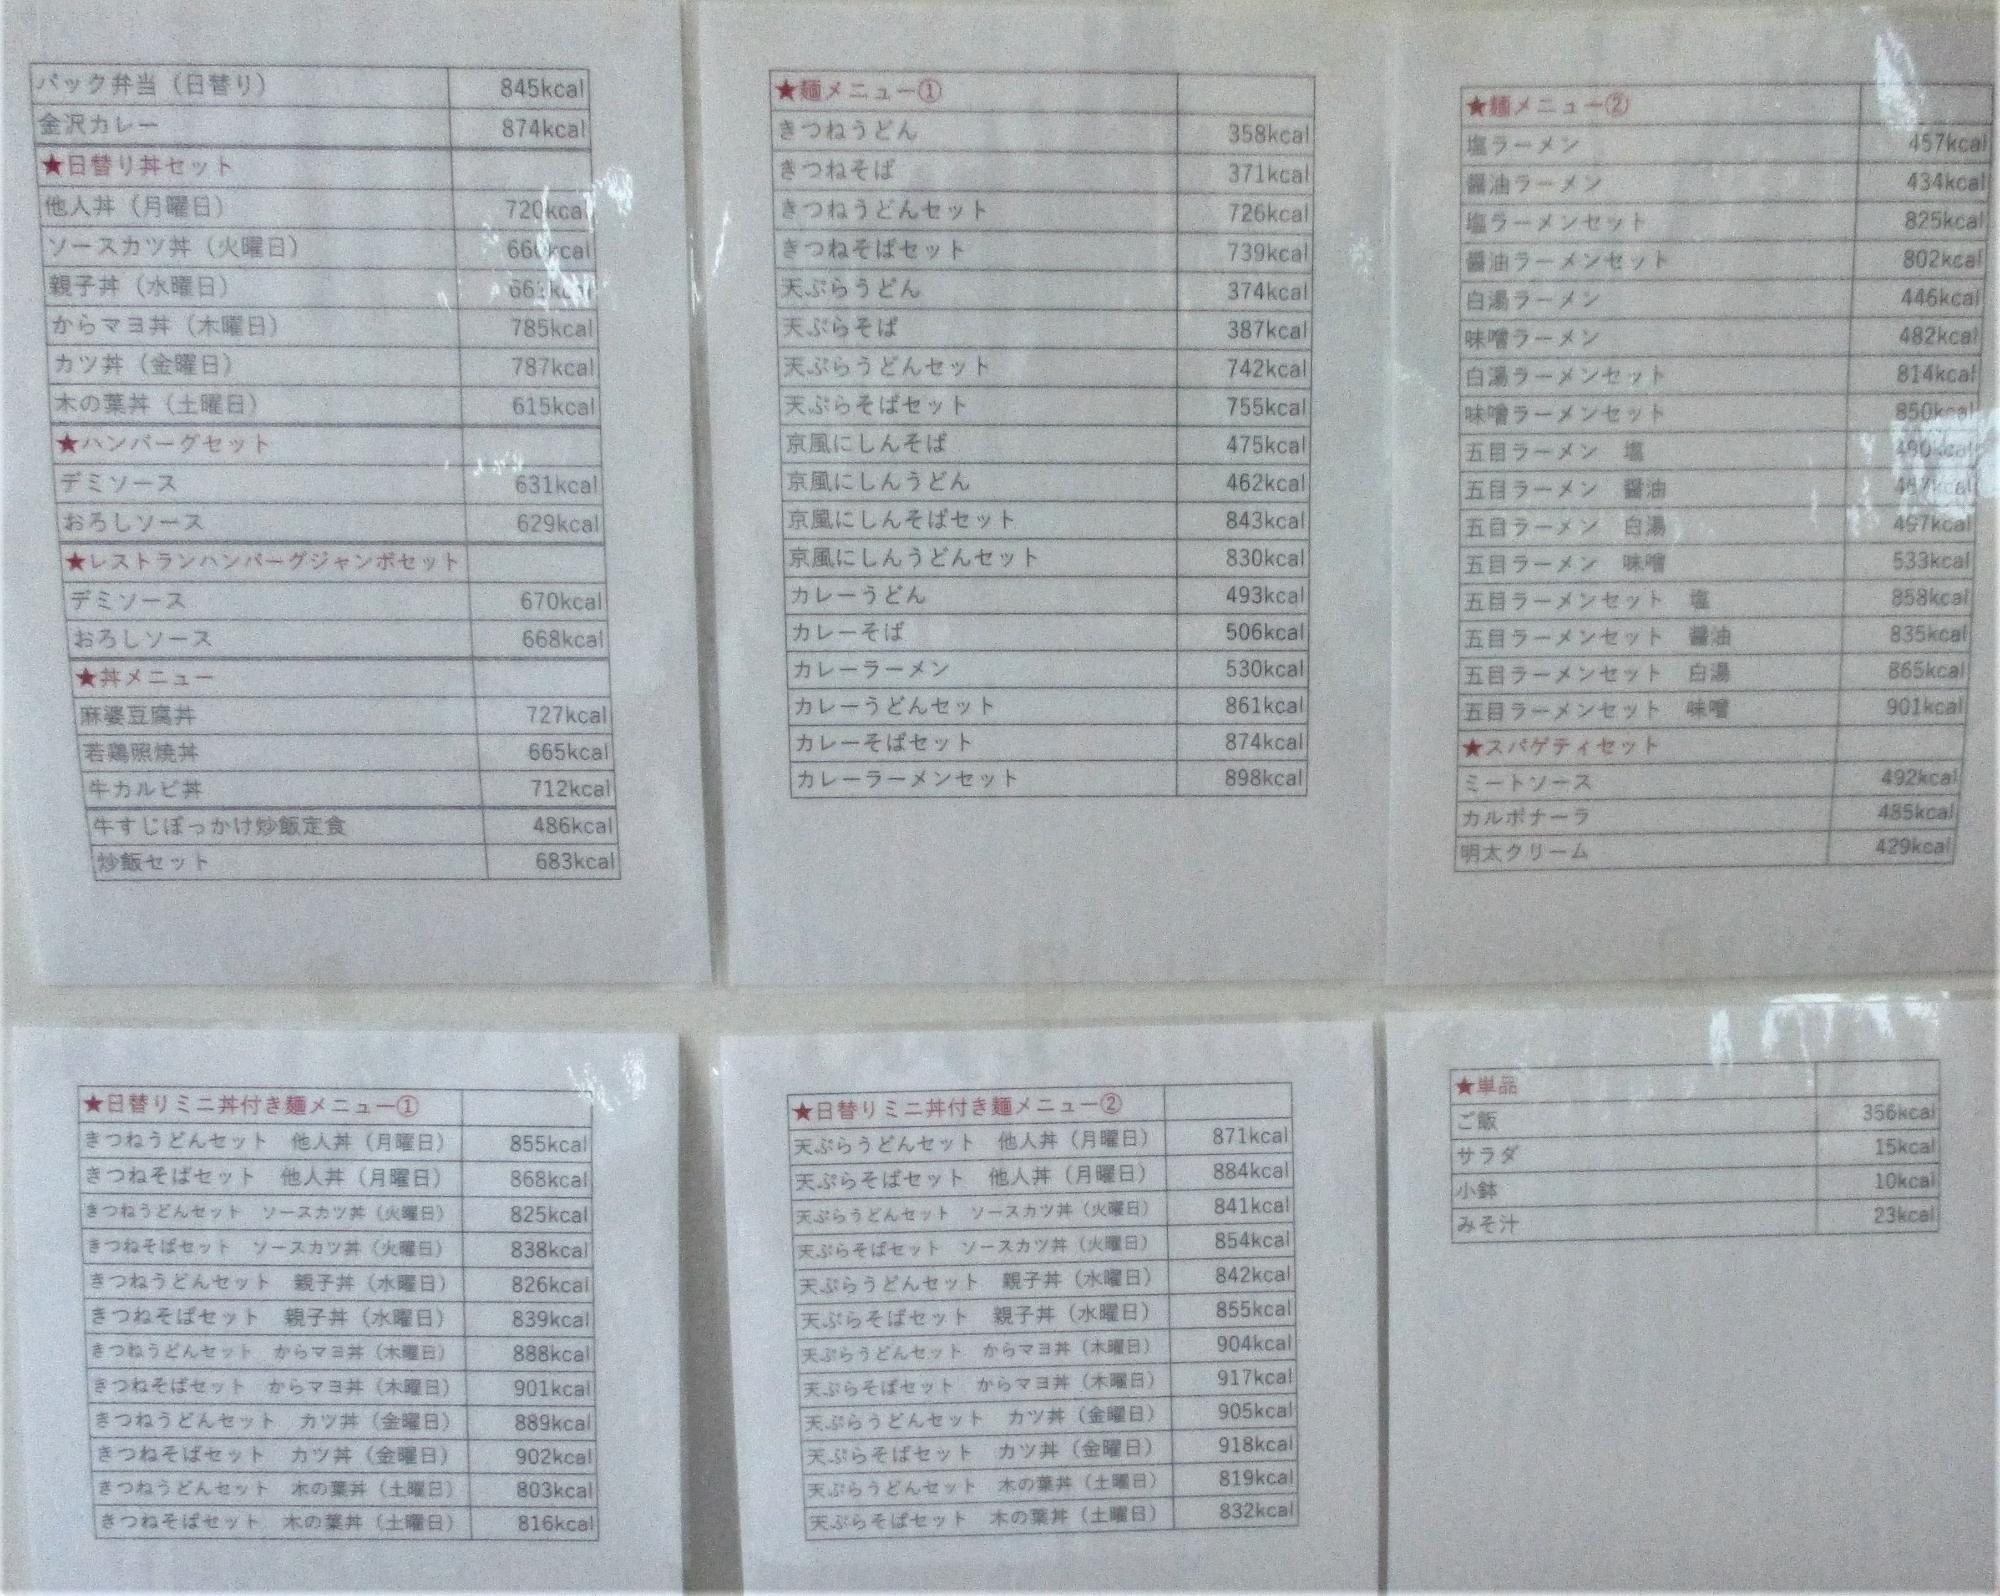 パック弁当（日替り） 845kcal
金沢カレー 874kcal
★日替り丼セット
他人丼（月曜日） 720kcal
ソースカツ丼（火曜日）
親子丼（水曜日）
からマヨ丼（木曜日） 785kcal
カツ丼（金曜日） 787kcal
木の葉丼（土曜日） 615kcal
★ハンバーグセット
デミソース 631kcal
おろしソース 629kcal
★レストランハンバーグジャンボセット
デミソース 670kcal
おろしソース 668kcal
★丼メニュー
麻婆豆腐丼 727kcal
若鶏照焼丼 665kcal
牛カルビ丼 712kcal
牛すじぼっかけ炒飯定食 486kcal
炒飯セット 683kcal
★麺メニュー①
きつねうどん 358kcal
きつねそば 371kcal
きつねうどんセット 726kcal
きつねそばセット 739kcal
天ぷらうどん 374kcal
天ぷらそば 387kcal
天ぷらうどんセット 742kcal
天ぷらそばセット 755kcal
京風にしんそば 475kcal
京風にしんうどん 462kcal
京風にしんそばセット 843kcal
京風にしんうどんセット 830kcal
カレーうどん 493kcal
カレーそば 506kcal
カレーラーメン 530kcal
カレーうどんセット 861kcal
カレーそばセット 874kcal
カレーラーメンセット 898kcal
★麺メニュー②
塩ラーメン 457kcal
醤油ラーメン 434kcal
塩ラーメンセット 825kcal
醤油ラーメンセット 802kcal
白湯ラーメン 446kcal
味噌ラーメン 482kcal
白湯ラーメンセット 814kcal
味噌ラーメンセット 850kcal
五目ラーメン　塩
五目ラーメン　醤油
五目ラーメン　白湯 497kcal
五目ラーメン　味噌 533kcal
五目ラーメンセット　塩 858kcal
五目ラーメンセット　醤油 835kcal
五目ラーメンセット　白湯 865kcal
五目ラーメンセット　味噌 901kcal
★スパゲティセット
ミートソース 492kcal
カルボナーラ 485kcal
明太クリーム 429kcal
★日替りミニ丼付き麺メニュー①
きつねうどんセット　他人丼（月曜日） 855kcal
きつねそばセット　他人丼（月曜日） 868kcal
きつねうどんセット　ソースカツ丼（火曜日） 825kcal
きつねそばセット　ソースカツ丼（火曜日） 838kcal
きつねうどんセット　親子丼（水曜日） 826kcal
きつねそばセット　親子丼（水曜日） 839kcal
きつねうどんセット　からマヨ丼（木曜日） 888kcal
きつねそばセット　からマヨ丼（木曜日） 901kcal
きつねうどんセット　カツ丼（金曜日） 889kcal
きつねそばセット　カツ丼（金曜日） 902kcal
きつねうどんセット　木の葉丼（土曜日） 803kcal
きつねそばセット　木の葉丼（土曜日） 816kcal
★日替りミニ丼付き麺メニュー②
天ぷらうどんセット　他人丼（月曜日） 871kcal
天ぷらそばセット　他人丼（月曜日） 884kcal
天ぷらうどんセット　ソースカツ丼（火曜日） 841kcal
天ぷらそばセット　ソースカツ丼（火曜日） 854kcal
天ぷらうどんセット　親子丼（水曜日） 842kcal
天ぷらそばセット　親子丼（水曜日） 855kcal
天ぷらうどんセット　からマヨ丼（木曜日） 904kcal
天ぷらそばセット　からマヨ丼（木曜日） 917kcal
天ぷらうどんセット　カツ丼（金曜日） 905kcal
天ぷらそばセット　カツ丼（金曜日） 918kcal
天ぷらうどんセット　木の葉丼（土曜日） 819kcal
天ぷらそばセット　木の葉丼（土曜日） 832kcal
★単品
ご飯 356kcal
サラダ 15kcal
小鉢 10kcal
みそ汁 23kcal